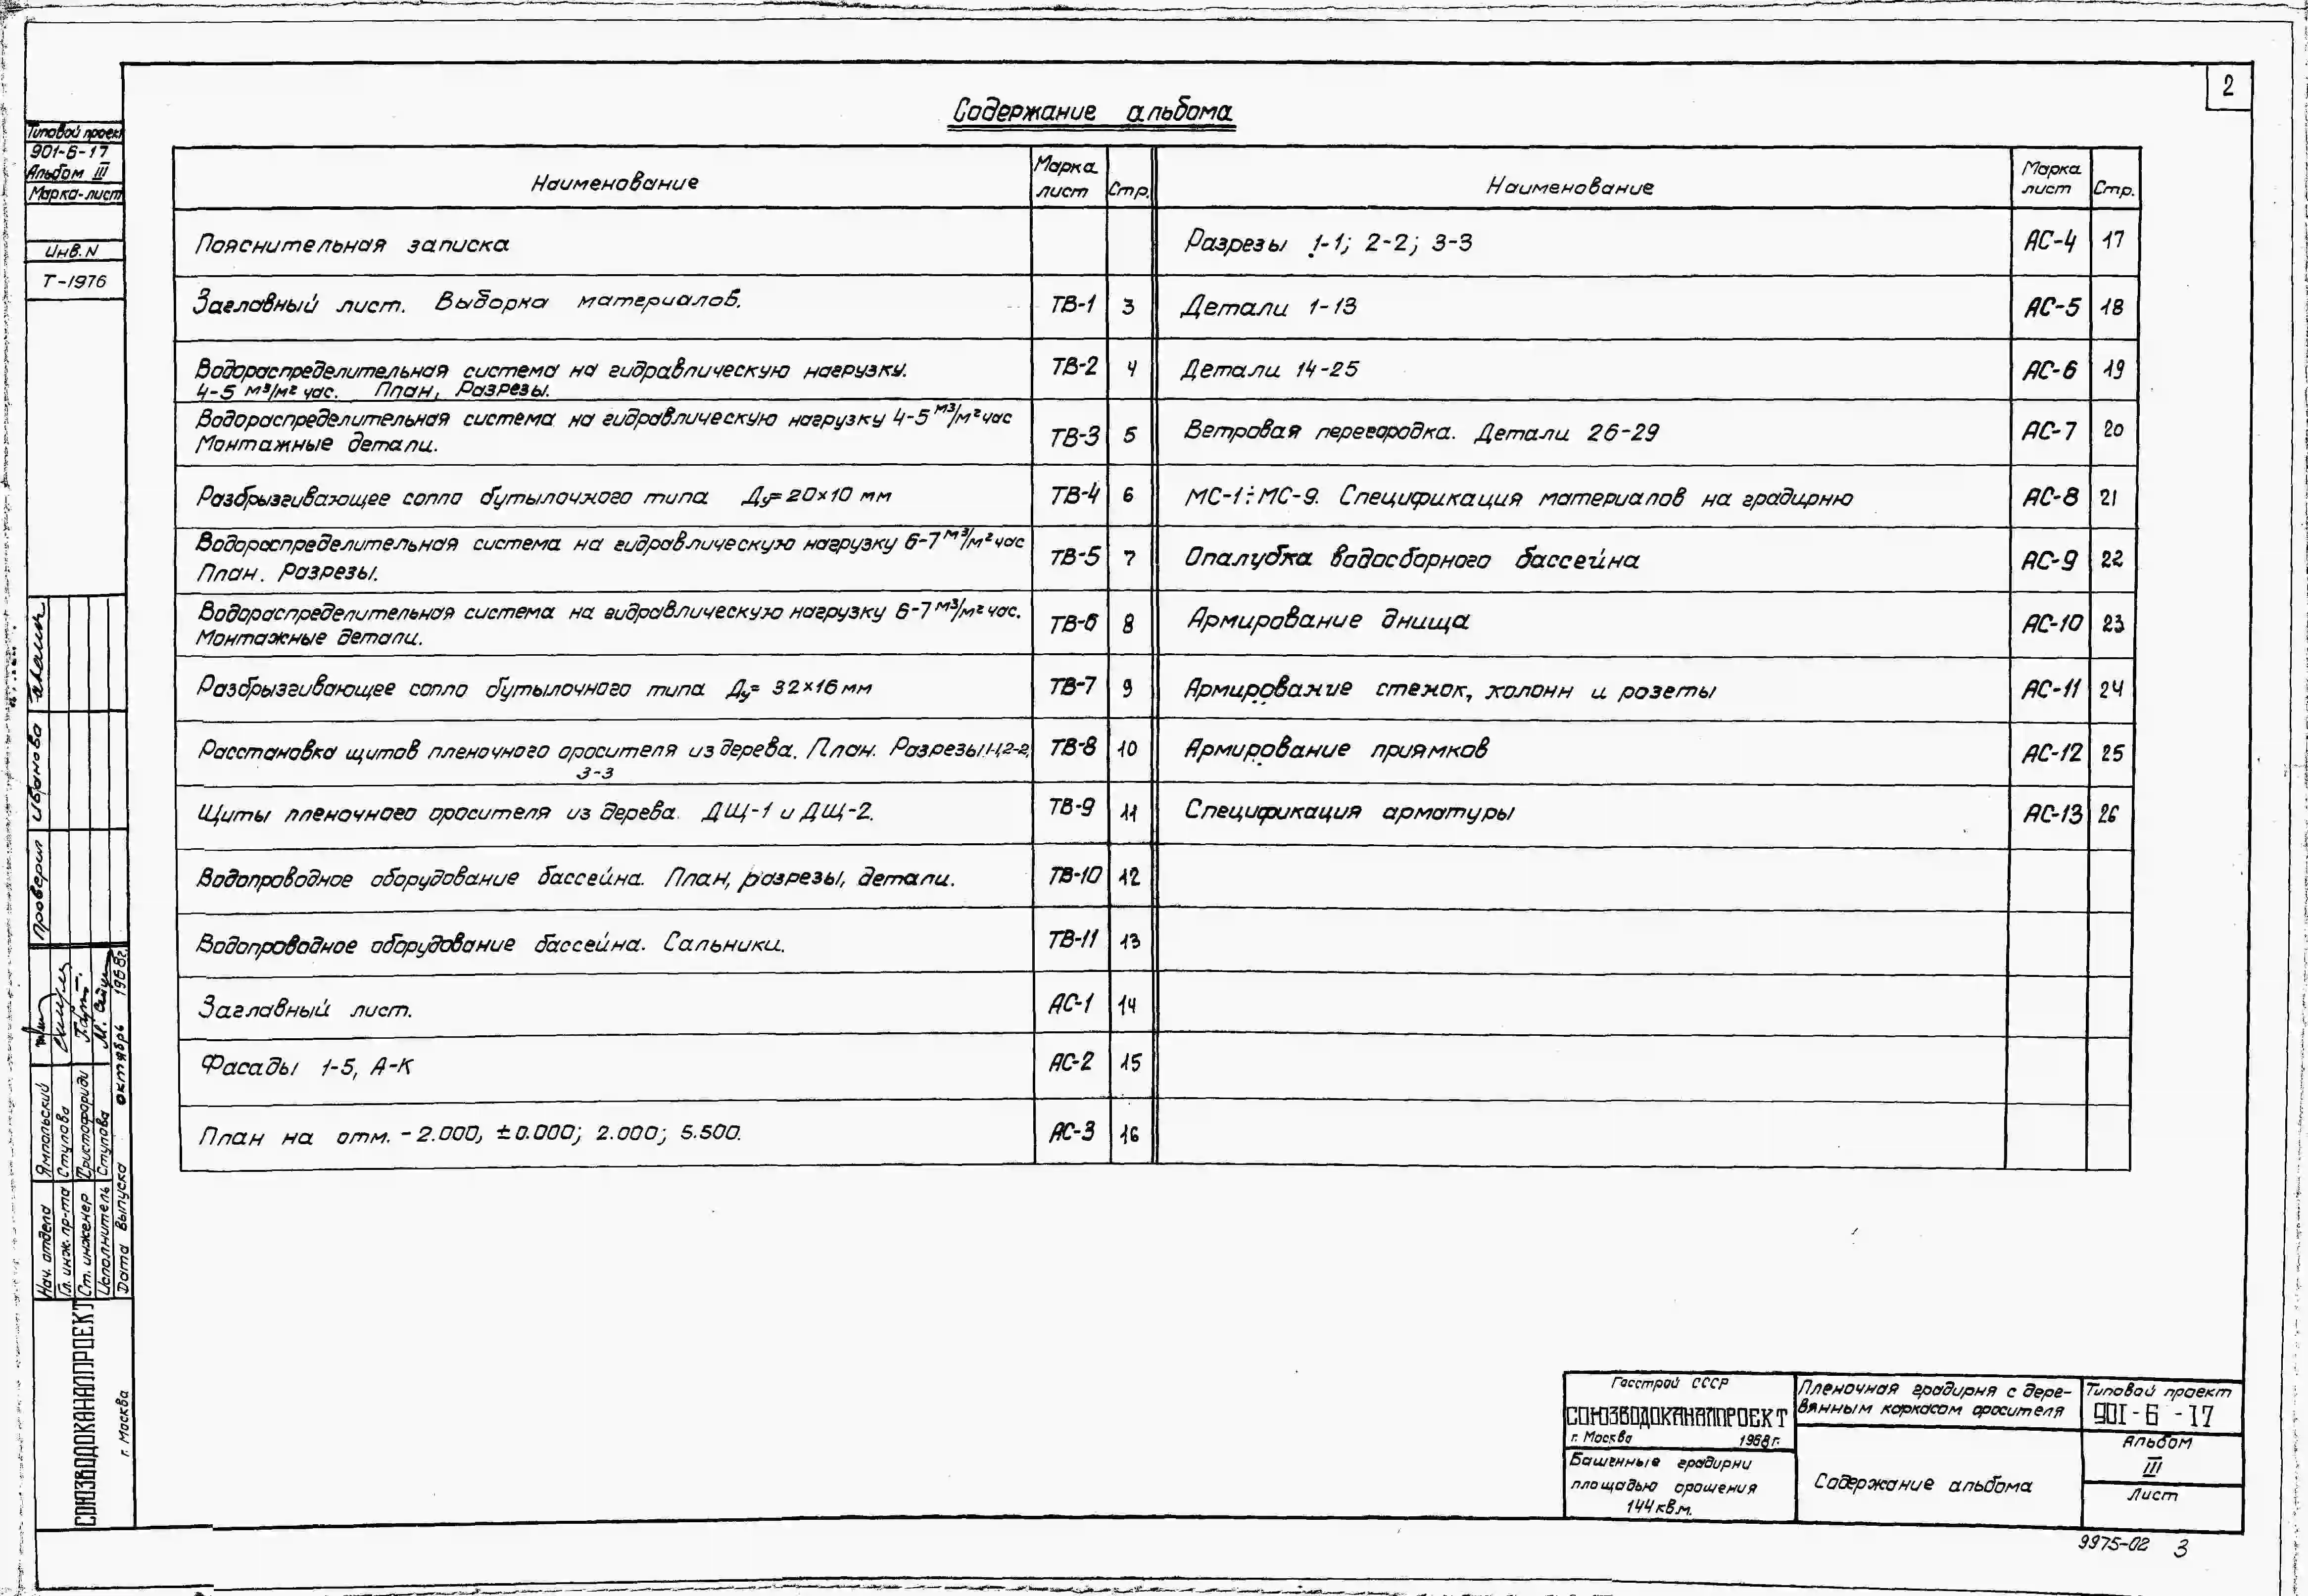 2
Содержание альбома
Типовой проект
901-6-17
Альбом III
Марка-лист
Инв. N
Т-1976
Наименование
Марка лист
Стр.
Наименование
Марка лист
Стр.
Пояснительная записка
Заглавный лист. Выборка материалов. ТВ-1 3
Водораспределительная система на гидравлическую нагрузку.
4-5 м³/м² час. План, Разрезы. ТВ-2 4
Водораспределительная система на гидравлическую нагрузку 4-5 м³/м² час
Монтажные детали. ТВ-3 5
Разбрызгивающее сопло бутылочного типа Ду=20×10 мм ТВ-4 6
Водораспределительная система на гидравлическую нагрузку 6-7 м³/м² час
План. Разрезы. ТВ-5 7
Водораспределительная система на гидравлическую нагрузку 6-7 м³/м² час.
Монтажные детали. ТВ-6 8
Разбрызгивающее сопло бутылочного типа Ду= 32×16 мм ТВ-7 9
Расстановка щитов пленочного оросителя из дерева. План. Разрезы 1-1, 2-2,
3-3 ТВ-8 10
Щиты пленочного оросителя из дерева. ДЩ-1 и ДЩ-2. ТВ-9 11
Водопроводное оборудование бассейна. План, разрезы, детали. ТВ-10 12
Водопроводное оборудование бассейна. Сальники. ТВ-11 13
Заглавный лист. АС-1 14
Фасады 1-5, А-К АС-2 15
План на отм. -2.000, ±0.000; 2.000; 5.500. АС-3 16
Разрезы 1-1; 2-2; 3-3 АС-4 17
Детали 1-13 АС-5 18
Детали 14-25 АС-6 19
Ветровая перегородка. Детали 26-29 АС-7 20
МС-1÷МС-9. Спецификация материалов на градирню АС-8 21
Опалубка водосборного бассейна АС-9 22
Армирование днища АС-10 23
Армирование стенок, колонн и розеты АС-11 24
Армирование приямков АС-12 25
Спецификация арматуры АС-13 26
Проверил Иванова
Нач. отдела Ямпольский
Гл. инж. пр-та Ступова
Ст. инженер Христофориди
Исполнитель Ступова
Дата выпуска октябрь 1968г.
СОЮЗВОДОКАНАЛПРОЕКТ
г. Москва
Госстрой СССР
СОЮЗВОДОКАНАЛПРОЕКТ
г. Москва 1968 г.
Башенные градирни
площадью орошения
144 кв.м.
Пленочная градирня с дере-
вянным каркасом оросителя
Содержание альбома
Типовой проект
901-6-17
Альбом
III
Лист
9975-02 3